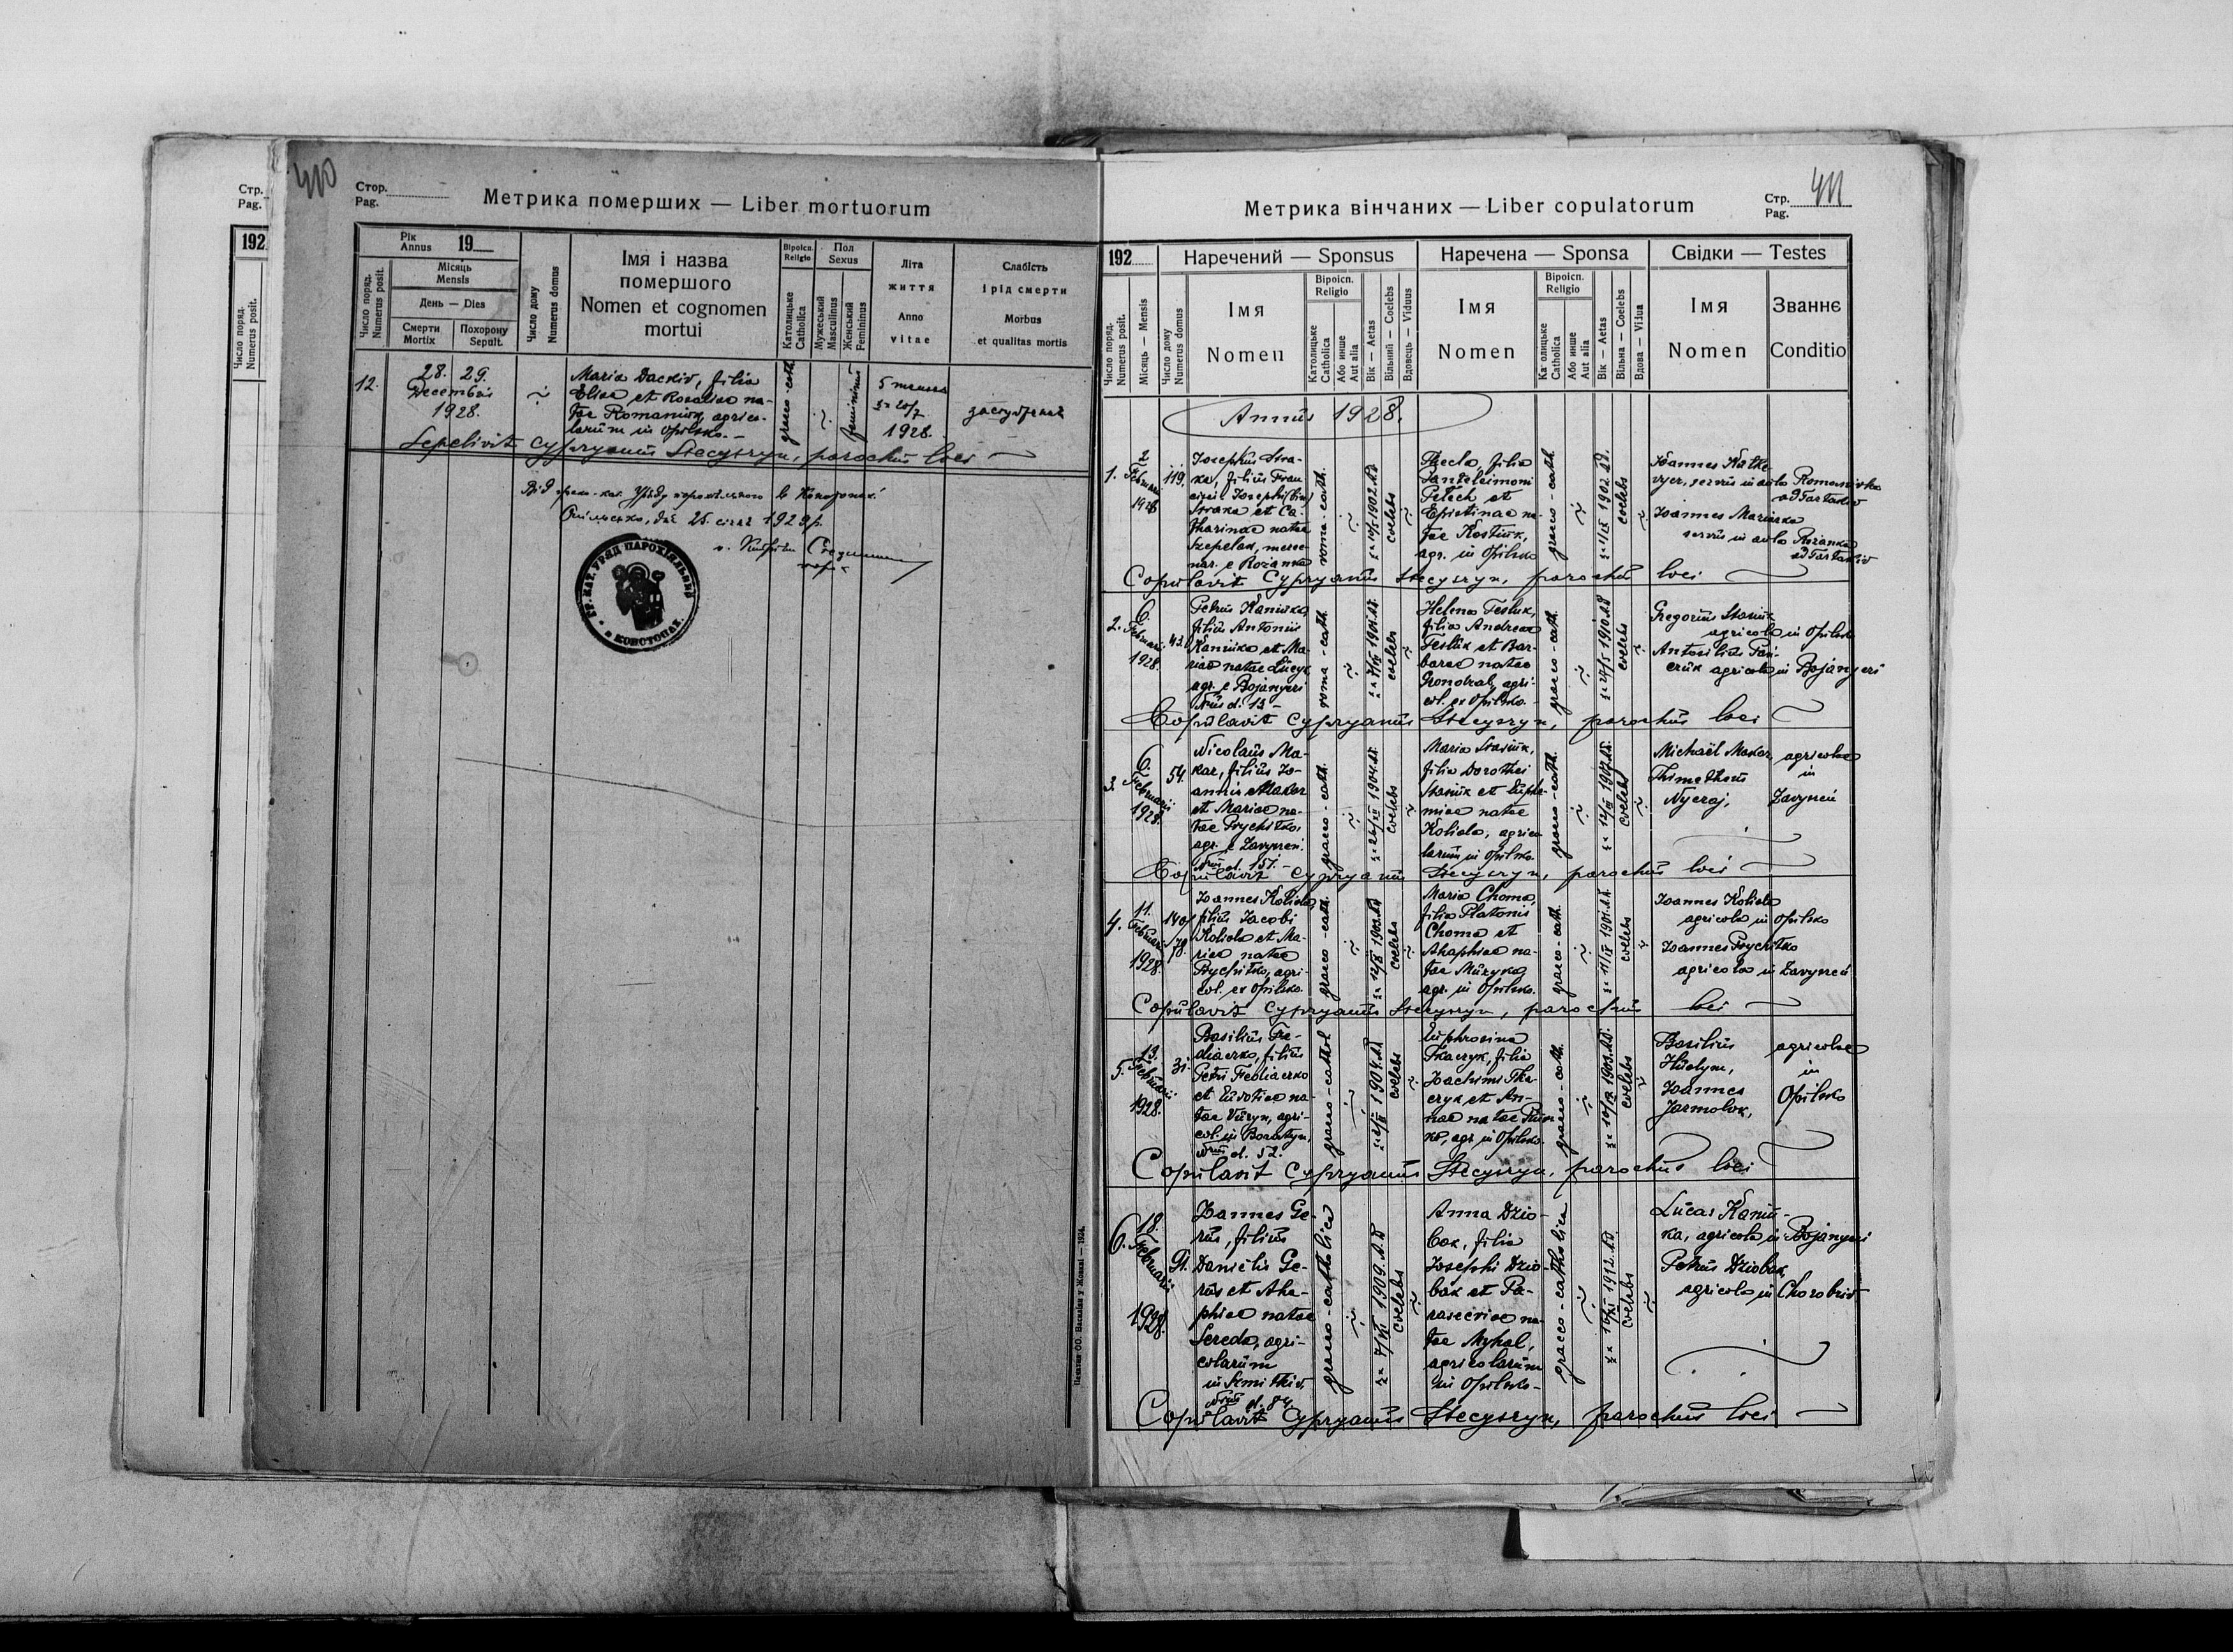 Стр.
Pag.
192
Число поряд.
Numerus posit.
410
Стор.
Pag.
Метрика померших — Liber mortuorum
Рік
Annus 19
Місяць
Mensis
День — Dies
Число поряд.
Numerus posit.
Смерти
Mortix
Похорону
Sepult.
Число дому
Numerus domus
Імя і назва
помершого
Nomen et cognomen
mortui
Віроісп.
Religio
Католицьке
Catholica
Пол
Sexus
Мужеський
Masculinus
Женський
Femininus
Літа
життя
Anno
vitae
Слабість
і рід смерти
Morbus
et qualitas mortis
12.
28. 29.
Decembris
1928.
Maria Dackiv, filia
Eliae et Rosaliae na-
tae Romaniuk, agrico-
larum in Opilsko.-
graeco-cath.
femininus
5 menses
1928.
Sepelivit Cypryanus Stecyszyn, parochus loci
Від греко-кат. Уряду парохіяльного в Конотопах
Опільсько, дня 25. січня 1929 р.
ГР. КАТ. УРЯД ПАРОХІЯЛЬНИЙ
в КОНОТОПАХ
Печатня ОО. Василіян у Жовкві — 1924.
Метрика вінчаних — Liber copulatorum
Стр.
Pag. 411
192
Наречений — Sponsus
Наречена — Sponsa
Свідки — Testes
Число поряд.
Numerus posit.
Місяць — Mensis
Число дому
Numerus domus
Імя
Nomen
Віроісп.
Religio
Католицьке
Catholica
Або инше
Aut alia
Вік — Aetas
Вільний — Coelebs
Вдовець — Viduus
Імя
Nomen
Віроісп.
Religio
Католицьке
Catholica
Або инше
Aut alia
Вік — Aetas
Вільна — Coelebs
Вдова — Vidua
Імя
Nomen
Званнє
Conditio
Annus 1928.
1.
2
Februarii
1928
119.
Josephus
filius Fran-
cisci
et Ca-
tharinae natae
Szepelak,
e Rożanka
roma-cath.
1902
coelebs
Thecla, filia
Panteleimoni
Pelech et
Epistinae na-
tae Kostiuk,
agr. in Opilsko
graeco-cath.
1902
coelebs
Joannes
servus in aula Romanivka
ad Tartakiv
Joannes
servus in aula Rożanka
ad Tartakiv
Copulavit Cypryanus Stecyszyn, parochus loci
2.
6.
Februarii
1928.
43.
Petrus Kaniuka,
filius Antonii
Kaniuka et Ma-
riae natae Lucyk,
agr. e Bojanyczi
Nrus d. 13 -
roma-cath.
1901
coelebs
Helena Tesluk,
filia Andreae
Tesluk et Bar-
barae natae
agri-
col. ex Opilsko.-
graeco-cath.
1910
coelebs
Gregorius Stasiuk
agricola in Opilsko
agricola in Bojanyczi
Copulavit Cypryanus Stecyszyn, parochus loci
3.
6.
Februarii
1928.
54.
Nicolaus Ma-
kar, filius Jo-
annis Makar
et Mariae na-
tae Prychitko,
agr. e Zavyszeń.
Nrus d. 151.-
graeco-cath.
1904
coelebs
Maria Stasiuk,
filia Dorothei
Stasiuk et Euphe-
miae natae
Koliada, agrico-
larum in Opilsko.
graeco-cath.
1907
coelebs
Michaël Makar, agricolae
Thimotheus in
Zavyszeń
Copulavit Cypryanus Stecyszyn, parochus loci
4.
11.
Februarii
1928.
140/
78.
Joannes Koliada,
filius Jacobi
Koliada et Ma-
riae natae
Prychitko, agri-
col. ex Opilsko.
graeco-cath.
1903
coelebs
Maria Choma,
filia Platonis
Choma et
Ahaphiae na-
tae Muzyka
agr. in Opilsko.
graeco-cath.
1901
coelebs
Joannes Koliada
agricola in Opilsko
Joannes Prychitko
agricola in Zavyszeń
Copulavit Cypryanus Stecyszyn, parochus loci
5.
13.
Februarii
1928.
31.
Basilius Fe-
diaczko, filius
Petri Fediaczko
et Eudotiae na-
tae agri-
col. in Boratyn,
Nrus d. 52.
graeco-cathol
1904
coelebs
Euphrosina
Tkaczyk, filia
Joachimi Tka-
czyk et An-
nae natae
agr. in Opilsko
graeco-cath.
1903
coelebs
Basilius agricolae
in
Joannes Opilsko
Jarmolok,
Copulavit Cypryanus Stecyszyn, parochus loci
6.
18.
Februarii
1928.
91.
Joannes Ge-
rus, filius
Danielis Ge-
rus et Aha-
phiae natae
Sereda, agri-
colarum
Nrus d. 84.
graeco-catholica
1909
coelebs
Anna Dzio-
bak, filia
Josephi Dzio-
bak et Pa-
rasceviae na-
tae Mykal,
agricolarum
in Opilsko-
graeco-catholica
1912
coelebs
Lucas Kaniu-
ka, agricola in Bojanyczi
Petrus Dziobak,
agricola in Chorobriv
Copulavit Cypryanus Stecyszyn, parochus loci